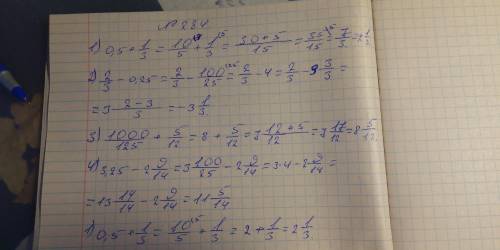 № 284
1) 0,5 + 1/3 = 10/5 + 1/3 = 30+5/15 = 35/15 = 7/3 = 2 1/3
2) 2/3 - 0,25 = 2/3 - 100/25 = 2/3 - 4 = 2/3 - 3 3/3 =
= 3 2-3/3 = -3 1/3
3) 1000/125 + 5/12 = 8 + 5/12 = 7 12+5/12 = 7 17/12 = 8 5/12
4) 3,25 - 2 9/14 = 3 100/25 - 2 9/14 = 3·4 - 2 9/14 =
= 13 14/14 - 2 9/14 = 11 5/14
1) 0,5 + 1/3 = 10/5 + 1/3 = 2 + 1/3 = 2 1/3